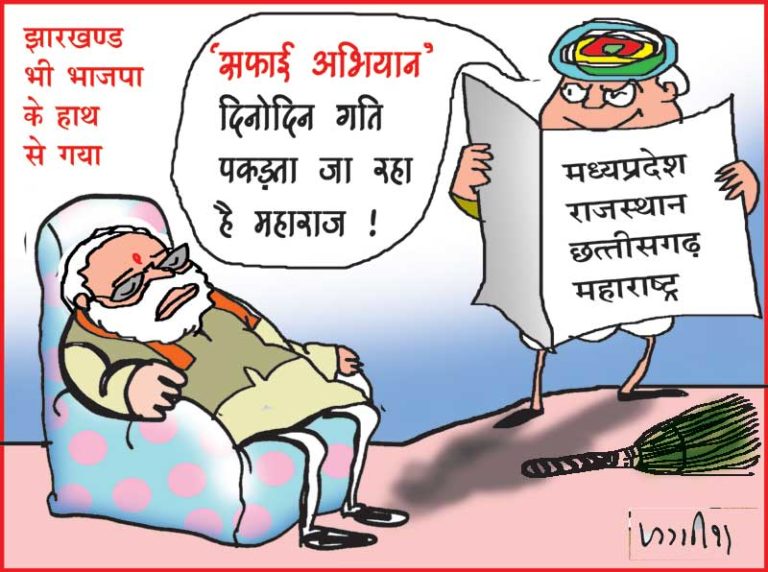 झारखण्ड
भी भाजपा
के हाथ
से गया
‘सफाई अभियान’
दिनोदिन गति
पकड़ता जा रहा
है महाराज !
मध्यप्रदेश
राजस्थान
छत्तीसगढ़
महाराष्ट्र